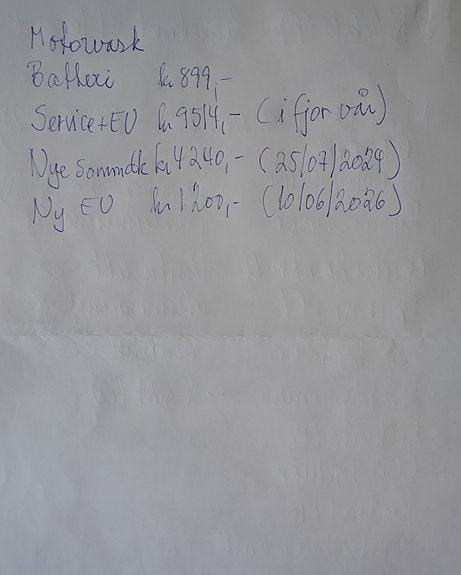 Motorvask
Batteri kr 899,-
Service+EU kr 9514,- (i fjor vår)
Nye sommdk kr 4240,- (25/07/2024)
Ny EU kr 1200,- (10/06/2026)